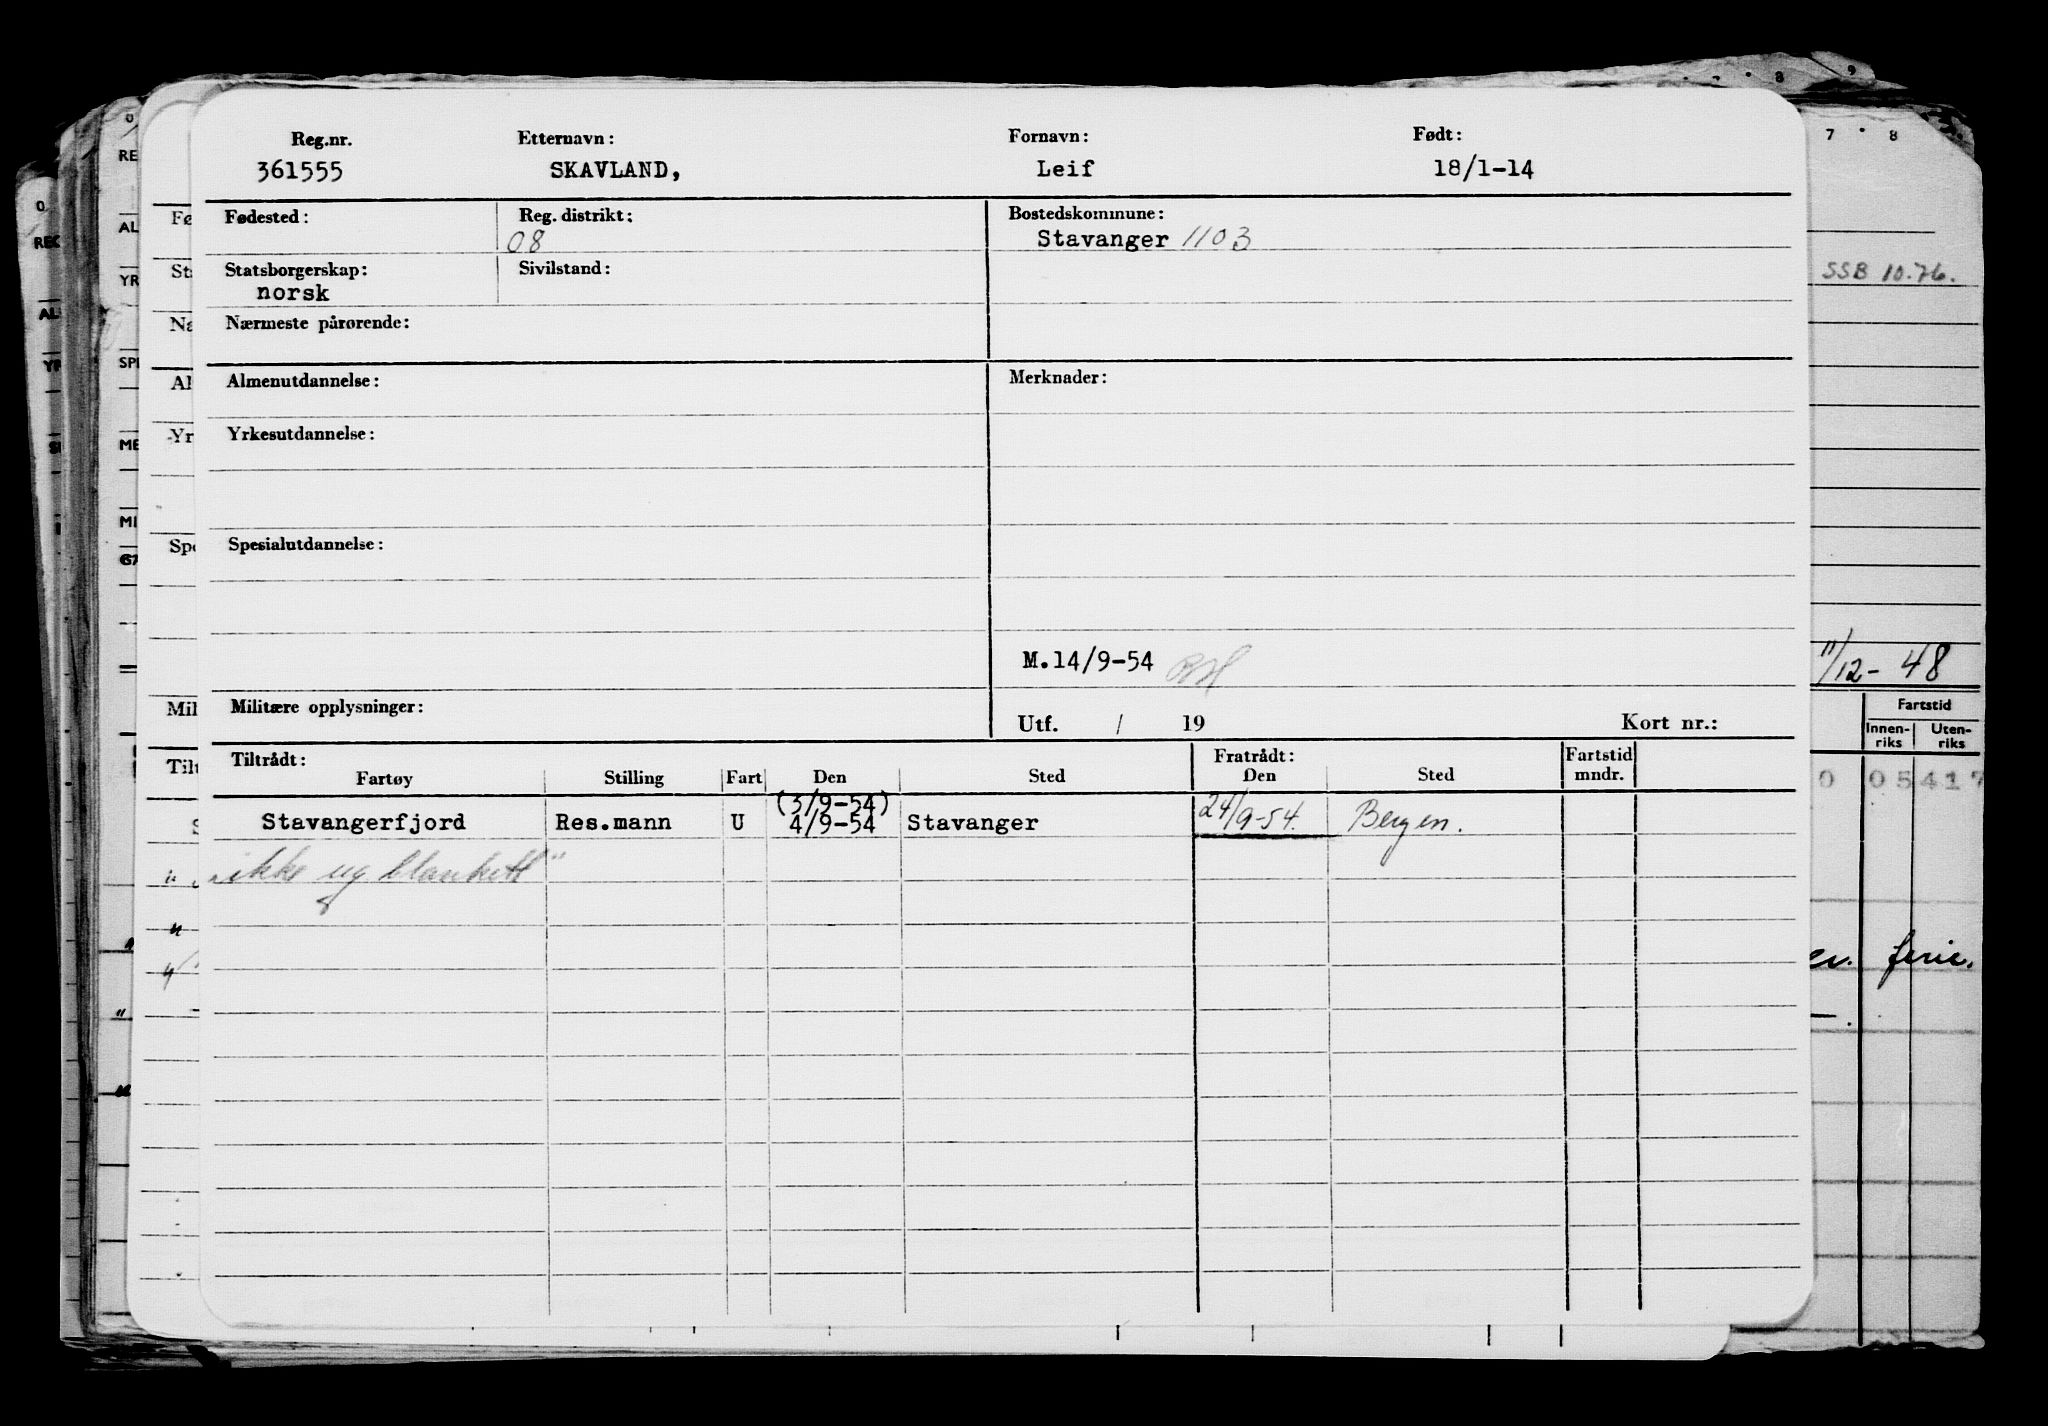 Reg.nr. Etternavn: Fornavn: Født:
361555 SKAVLAND, Leif 18/1-14
Fødested: Reg. distrikt: Bostedskommune:
08 Stavanger 1103
Statsborgerskap: Sivilstand:
norsk
SSB 10.76.
Nærmeste pårørende:
Almenutdannelse: Merknader:
Yrkesutdannelse:
Spesialutdannelse:
M.14/9-54
11/12-48
Militære opplysninger:
Utf. / 19 Kort nr.:
Fartstid
Innen-riks Uten-riks
Tiltrådt: Fratrådt: Fartstid
Fartøy Stilling Fart Den Sted Den Sted mndr.
(3/9-54)
Stavangerfjord Res.mann U 4/9-54 Stavanger 24/9-54. Bergen.
0 05417
"ikke ug blankett"
ferie.
7 8
8 9